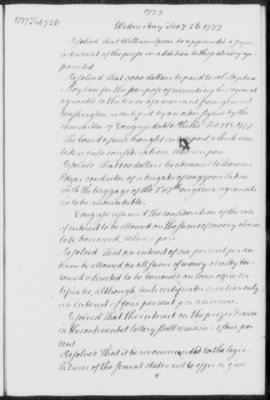 1773
1777 Feby 26
Wednesday Feby 26 1777
Resolved that William Govett be appointed a
in addition to those already ap
pointed
Resolved That 2000 dollars be paid to col. Stephen
Moylan for the purpose of recruiting his regiment
agreeable to the tenor of a warrant from general
Washington
committee of Congress dated Philada. 1777
The board of war brought in a report which was
taken into consideration Whereupon
Resolved That 200 dollars be advanced to Thomas
Edgar conductor of a brigade of waggons laden
with the baggage of the 3 & 7th virginia regiments
he to be accountable.
Congress resumed the consideration of the rate
of interest to be allowed on the sums of money ordered
to be borrowed, whereupon
Resolved That an interest of six per cent per an
num be allowed on all sums of money already bor
rowed & directed to be borrowed on loan office cer
tificates, although such certificates mention only
an interest of four per cent per annum.
Resolved That the interest on the prizes drawn
in the continental lottery shall remain at four per
cent
Resolved That it be recommended to the legis
latures of the several states not to offer or give